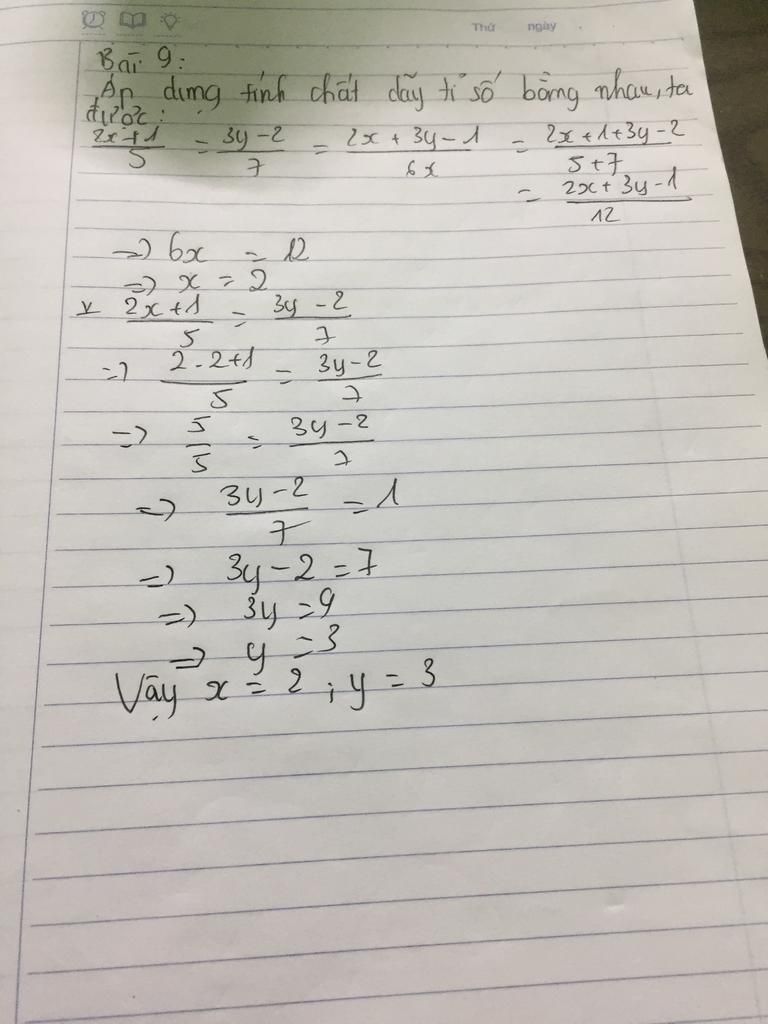 Thứ ngày
Bài 9:
Áp dụng tính chất dãy tỉ số bằng nhau, ta
được:
(2x+1)/5 = (3y-2)/7 = (2x+3y-1)/6x = (2x+1+3y-2)/(5+7)
= (2x+3y-1)/12
=> 6x = 12
=> x = 2
* (2x+1)/5 = (3y-2)/7
=> (2.2+1)/5 = (3y-2)/7
=> 5/5 = (3y-2)/7
=> (3y-2)/7 = 1
=> 3y-2 = 7
=> 3y = 9
=> y = 3
Vậy x = 2 ; y = 3